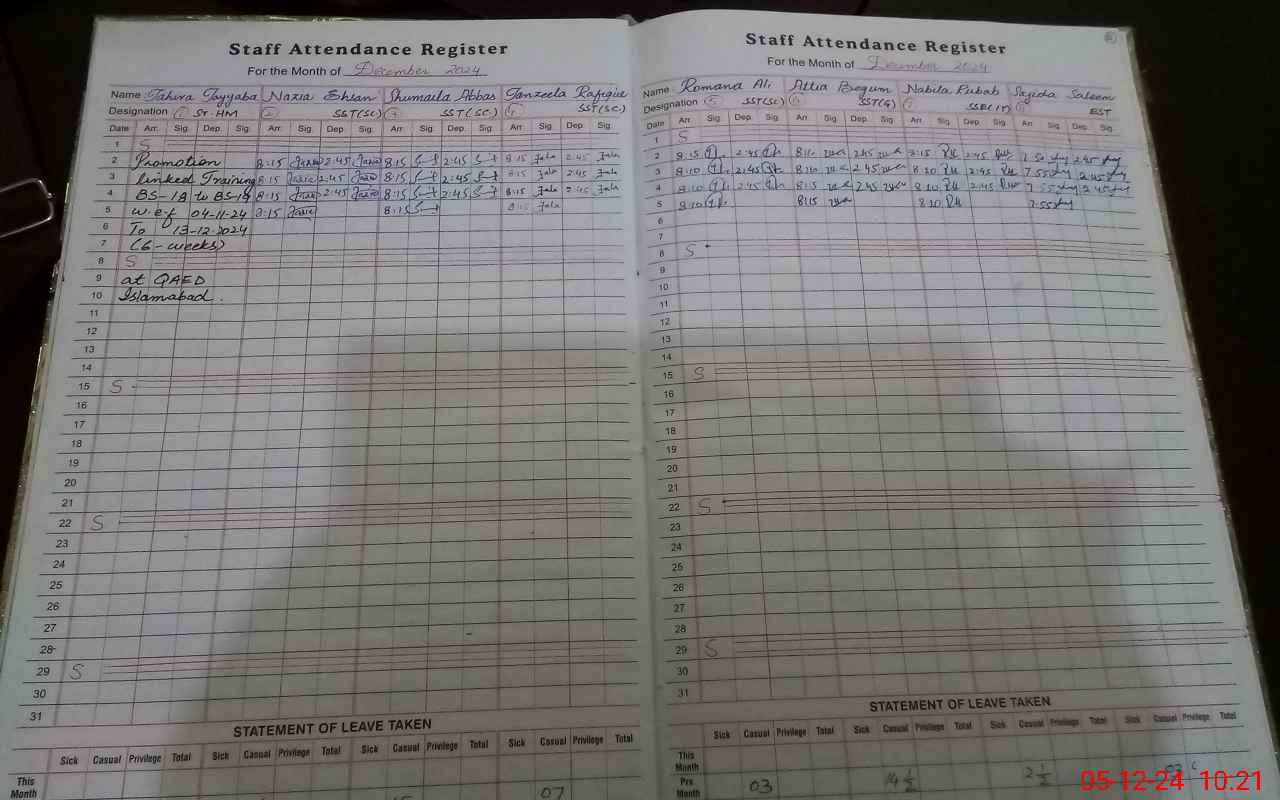 Staff Attendance Register
For the Month of December 2024
Name Tahira Tayyaba Nazia Ehsan Shumaila Abbas Tanzeela Rafique
Designation 1 Sr. HM 2 SST(SC) 3 SST(SC) 4 SST(SC)
Date Arr. Sig. Dep. Sig. Arr. Sig. Dep. Sig. Arr. Sig. Dep. Sig. Arr. Sig. Dep. Sig.
1 S
2 Promotion 8:15 2:45 8:15 2:45 8:15 2:45
3 linked Training 8:15 2:45 8:15 2:45 8:15 2:45
4 BS-18 to BS-19 8:15 2:45 8:15 2:45 8:15 2:45
5 w.e.f 04-11-24 8:15 8:15 8:15
6 To 13-12-2024
7 (6-weeks)
8 S
9 at QAED
10 Islamabad.
11
12
13
14
15 S
16
17
18
19
20
21
22 S
23
24
25
26
27
28
29 S
30
31
STATEMENT OF LEAVE TAKEN
Sick Casual Privilege Total Sick Casual Privilege Total Sick Casual Privilege Total Sick Casual Privilege Total
This Month 07
Staff Attendance Register
For the Month of December 2024
Name Romana Ali Attia Begum Nabila Rubab Sajida Saleem
Designation 5 SST(SC) 6 SST(G) 7 SSE(IT) 8 EST
Date Arr. Sig. Dep. Sig. Arr. Sig. Dep. Sig. Arr. Sig. Dep. Sig. Arr. Sig. Dep. Sig.
1 S
2 8:15 2:45 2:45 8:15 2:45 7:50 2:45
3 8:10 2:45 8:10 2:45 8:10 2:45 7:55 2:45
4 8:10 2:45 8:15 2:45 8:10 2:45 7:55 2:45
5 8:10 8:15 8:10 7:55
6
7
8 S
9
10
11
12
13
14
15 S
16
17
18
19
20
21
22 S
23
24
25
26
27
28
29 S
30
31
STATEMENT OF LEAVE TAKEN
Sick Casual Privilege Total Sick Casual Privilege Total Sick Casual Privilege Total Sick Casual Privilege Total
This Month
Pre Month 03 14 1/2 2 1/2 03
05-12-24 10.21